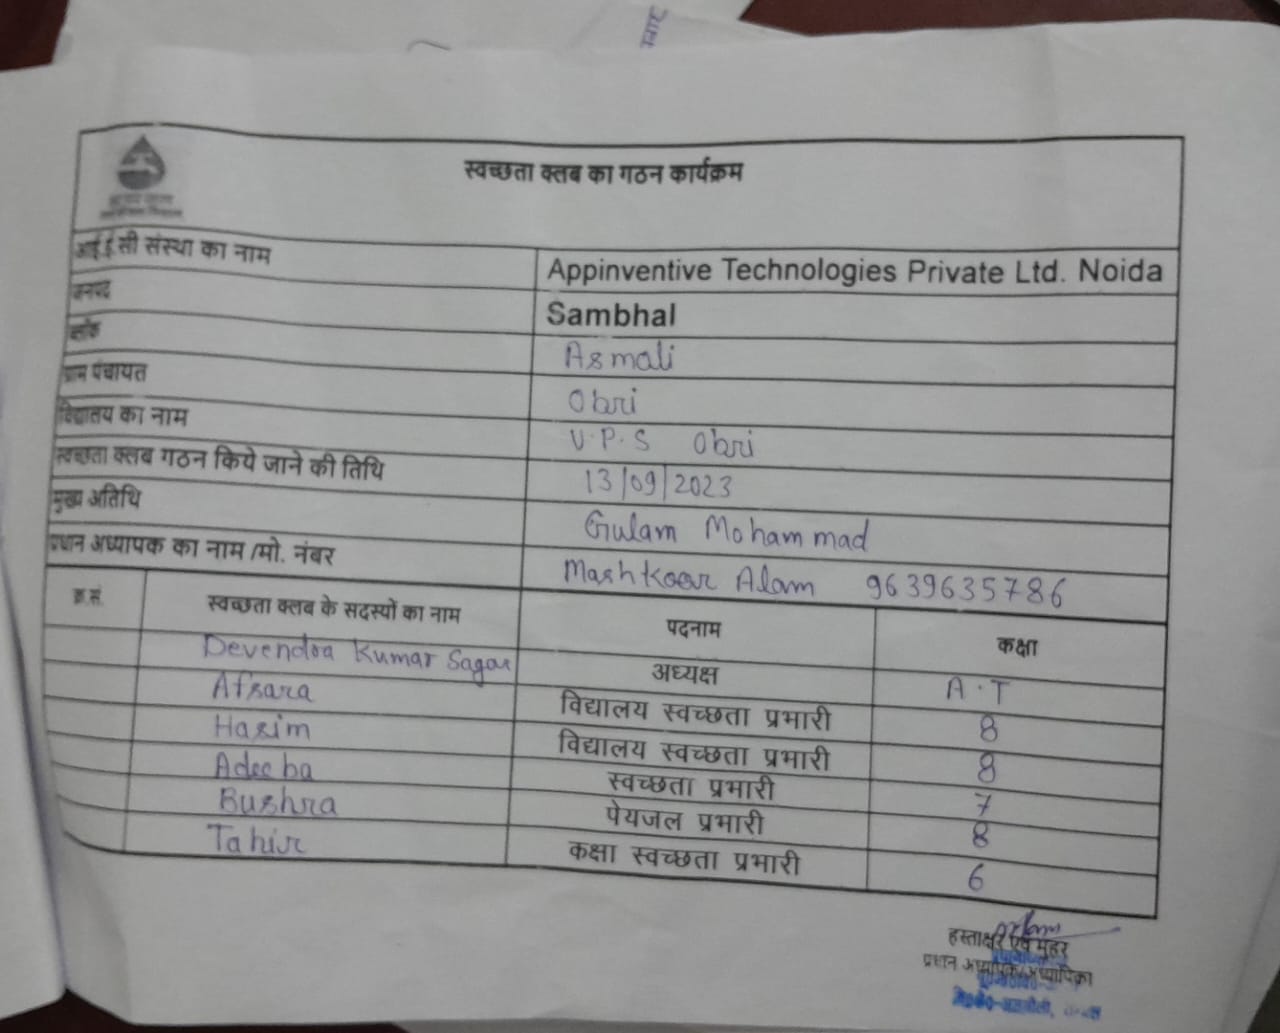 स्वच्छता क्लब का गठन कार्यक्रम
आई.ई.सी संस्था का नाम Appinventive Technologies Private Ltd. Noida
जनपद Sambhal
ब्लॉक Asmali
ग्राम पंचायत Obri
विद्यालय का नाम U.P.S Obri
स्वच्छता क्लब गठन किये जाने की तिथि 13/09/2023
मुख्य अतिथि Gulam Mohammad
प्रधान अध्यापक का नाम /मो. नंबर Mashkoor Alam 9639635786
क्र.सं. स्वच्छता क्लब के सदस्यों का नाम पदनाम कक्षा
Devendra Kumar Sagar अध्यक्ष A.T
Afsara विद्यालय स्वच्छता प्रभारी 8
Hasim विद्यालय स्वच्छता प्रभारी 8
Adeeba स्वच्छता प्रभारी 7
Bushra पेयजल प्रभारी 8
Tahir कक्षा स्वच्छता प्रभारी 6
हस्ताक्षर एवं मुहर
प्रधान अध्यापक/अध्यापिका